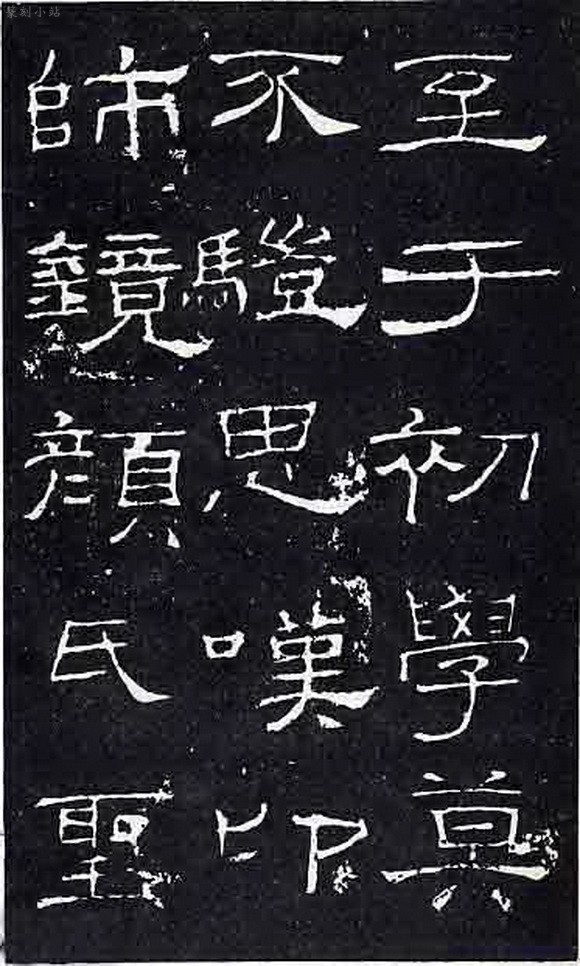 篆刻小站
至于初學莫
不騹思嘆卬
師鏡顏氏聖